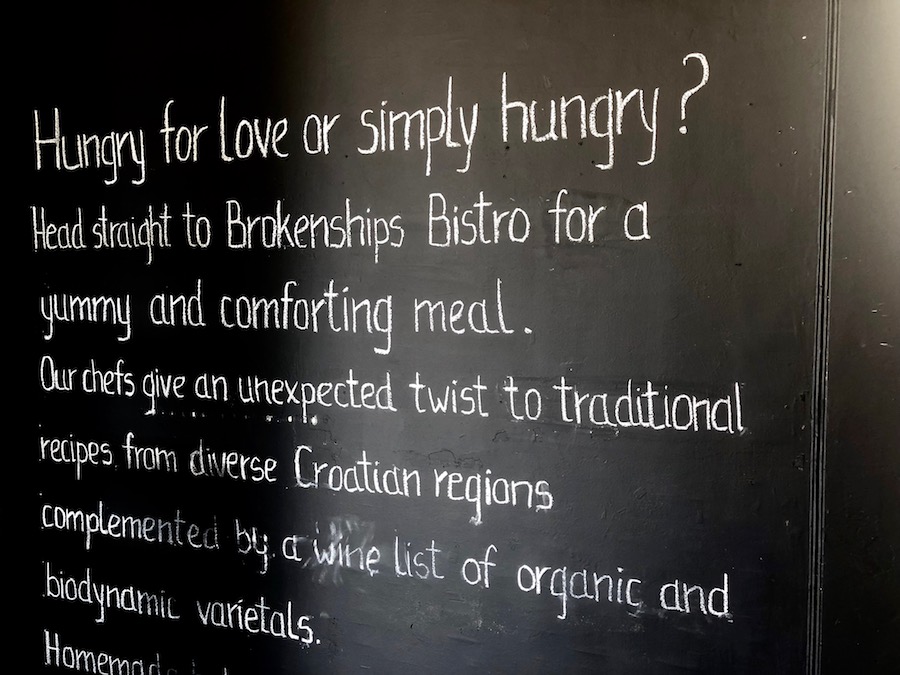 Hungry for love or simply hungry?
Head straight to Brokenships Bistro for a
yummy and comforting meal.
Our chefs give an unexpected twist to traditional
recipes from diverse Croatian regions
complemented by a wine list of organic and
biodynamic varietals.